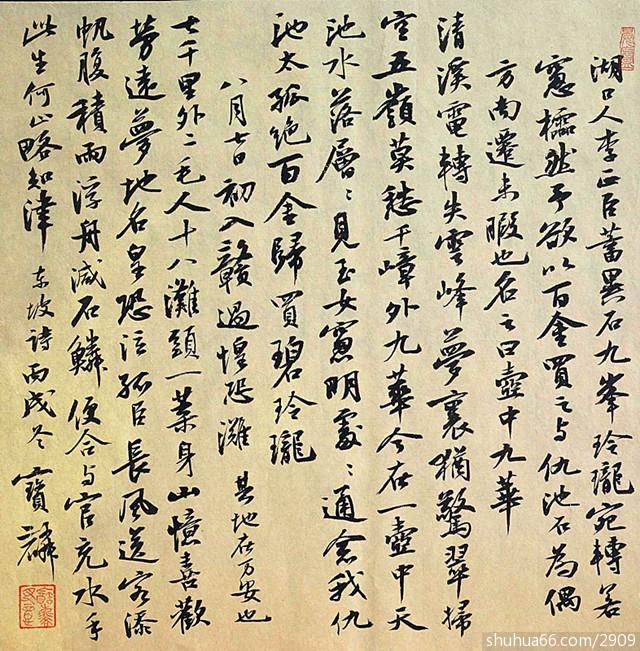 湖口人李正臣蓄異石九峯玲瓏宛轉若
窻櫺然予欲以百金買之与仇池石為偶
方南遷未暇也名之曰壺中九華
清溪電轉失雲峰夢裏猶驚翠掃
空五嶺莫愁千嶂外九華今在一壺中天
池水落層〻見玉女窻明處〻通念我仇
池太孤絶百金歸買碧玲瓏
八月七日初入贛過惶恐灘 其地在万安也
七千里外二毛人十八灘頭一葉身山憶喜歡
勞遠夢地名皇恐泣孤臣長風送客添
帆腹積雨浮舟減石鱗便合与官充水手
此生何止略知津 东坡詩丙戌冬 寶麟
shuhua66.com/2909